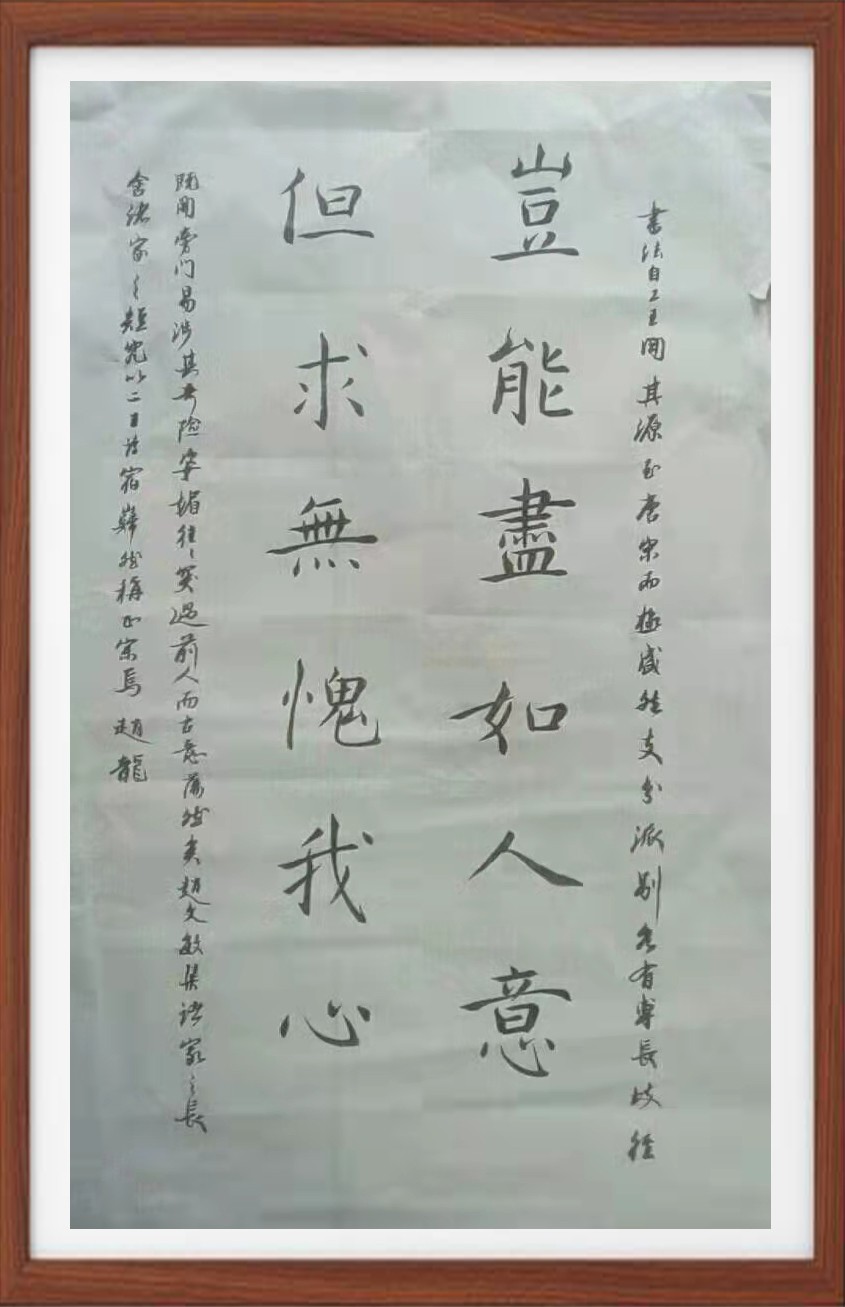 書法自二王開其源至唐宋而極盛然支分派別各有專長歧徑
豈能盡如人意
但求無愧我心
既開旁门易涉其奇險姿媚往往突過前人而古意蕩然矣趙文敏集諸家之長
舍諸家之短究以二王為宿歸然稱正宗焉 趙龍